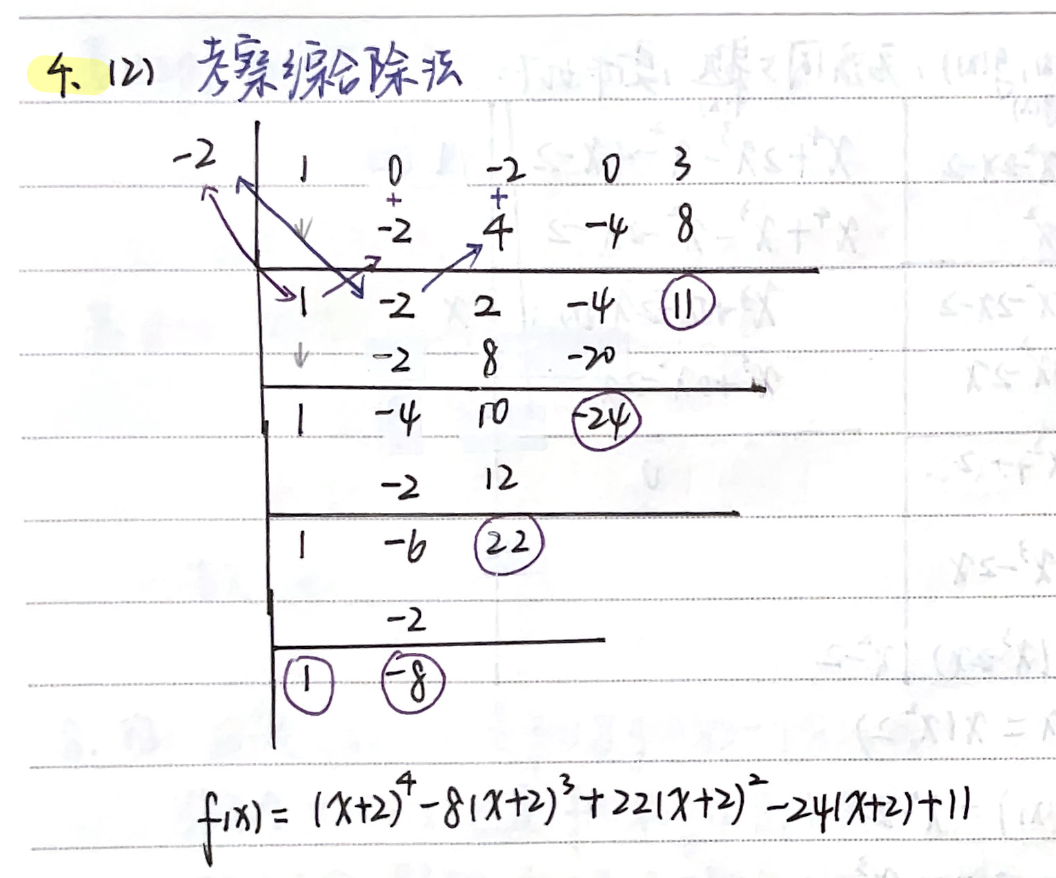 4. (2) 考察综合除法
-2 1 0 -2 0 3
+ +
-2 4 -4 8
1 -2 2 -4 11
-2 8 -20
1 -4 10 -24
-2 12
1 -6 22
-2
1 -8
f(x) = (x+2)^4 - 8(x+2)^3 + 22(x+2)^2 - 24(x+2) + 11